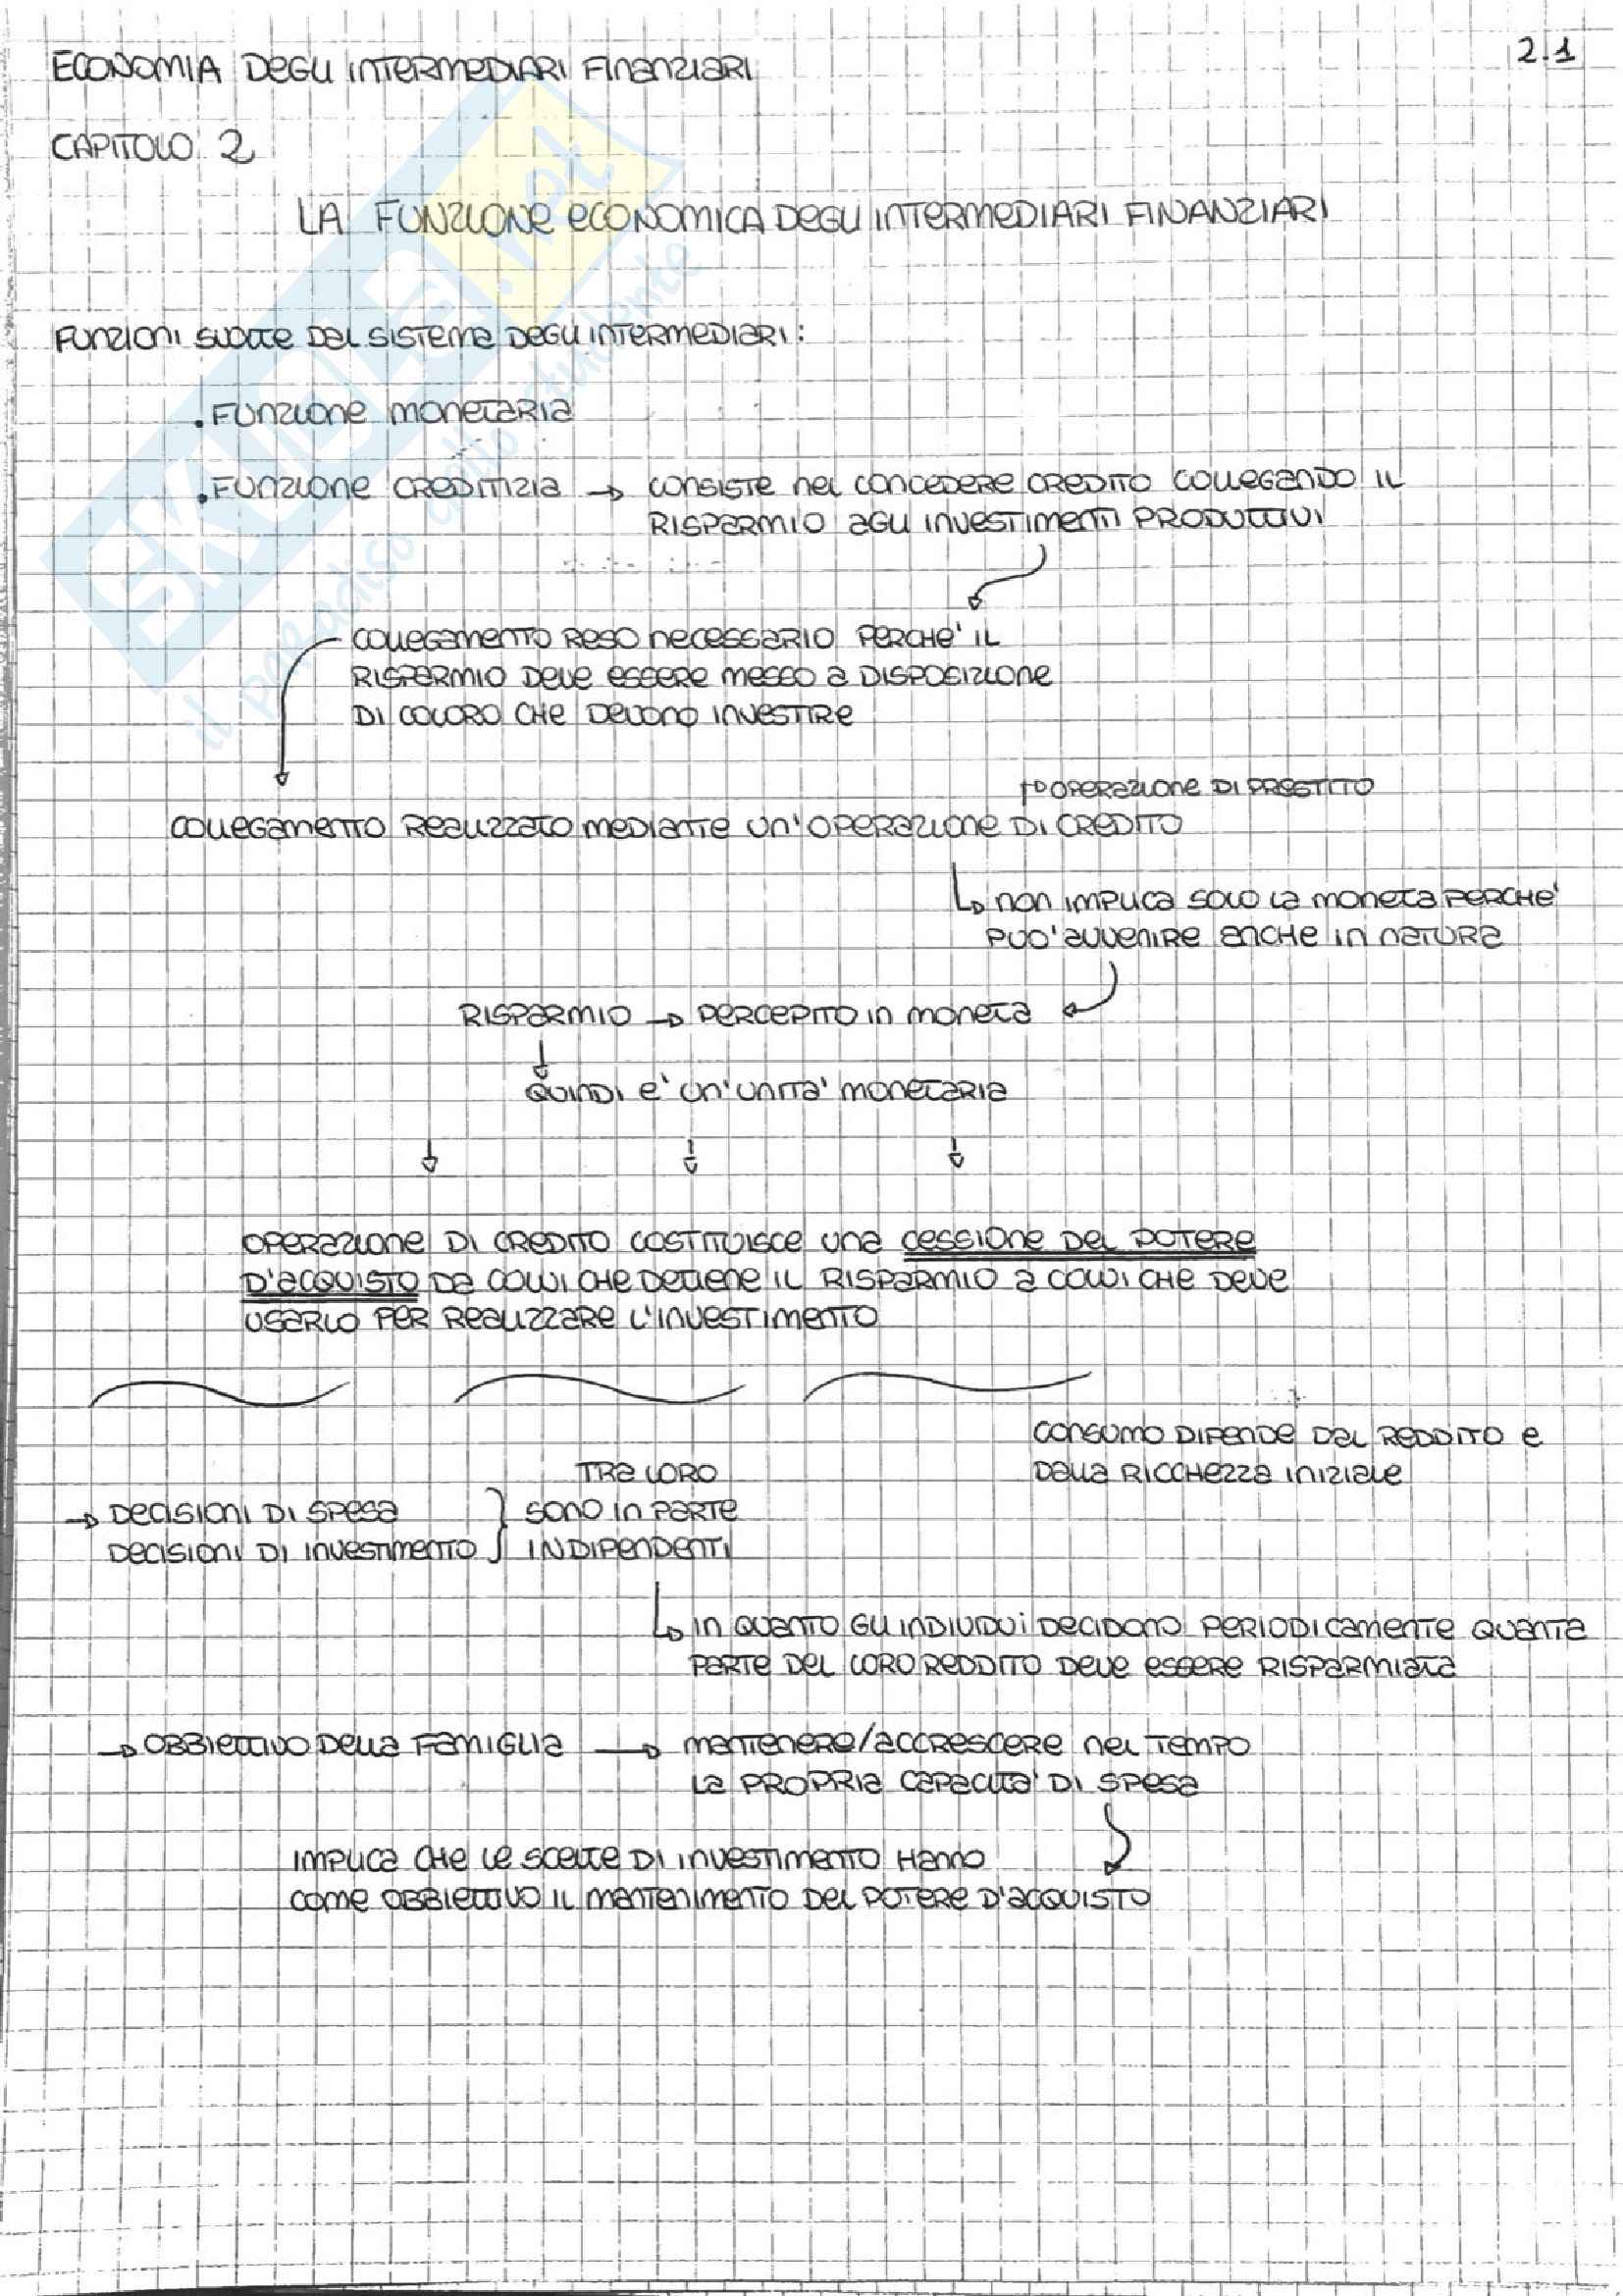 2.1
ECONOMIA DEGLI INTERMEDIARI FINANZIARI
CAPITOLO 2
LA FUNZIONE ECONOMICA DEGLI INTERMEDIARI FINANZIARI
FUNZIONI SVOLTE DAL SISTEMA DEGLI INTERMEDIARI:
• FUNZIONE MONETARIA
• FUNZIONE CREDITIZIA → CONSISTE NEL CONCEDERE CREDITO COLLEGANDO IL
RISPARMIO AGLI INVESTIMENTI PRODUTTIVI
COLLEGAMENTO RESO NECESSARIO PERCHE' IL
RISPARMIO DEVE ESSERE MESSO A DISPOSIZIONE
DI COLORO CHE DEVONO INVESTIRE
→ OPERAZIONE DI PRESTITO
COLLEGAMENTO REALIZZATO MEDIANTE UN'OPERAZIONE DI CREDITO
↳ NON IMPLICA SOLO LA MONETA PERCHE'
PUO' AVVENIRE ANCHE IN NATURA
RISPARMIO → PERCEPITO IN MONETA
QUINDI E' UN'UNITA' MONETARIA
OPERAZIONE DI CREDITO COSTITUISCE UNA CESSIONE DEL POTERE
D'ACQUISTO DA COLUI CHE DETIENE IL RISPARMIO A COLUI CHE DEVE
USARLO PER REALIZZARE L'INVESTIMENTO
CONSUMO DIPENDE DAL REDDITO E
DALLA RICCHEZZA INIZIALE
TRA LORO
→ DECISIONI DI SPESA } SONO IN PARTE
DECISIONI DI INVESTIMENTO INDIPENDENTI
↳ IN QUANTO GLI INDIVIDUI DECIDONO PERIODICAMENTE QUANTA
PARTE DEL LORO REDDITO DEVE ESSERE RISPARMIATA
→ OBBIETTIVO DELLA FAMIGLIA → MANTENERE/ACCRESCERE NEL TEMPO
LA PROPRIA CAPACITA' DI SPESA
IMPLICA CHE LE SCELTE DI INVESTIMENTO HANNO
COME OBBIETTIVO IL MANTENIMENTO DEL POTERE D'ACQUISTO
SKUOLA.net
il paradiso dello studente